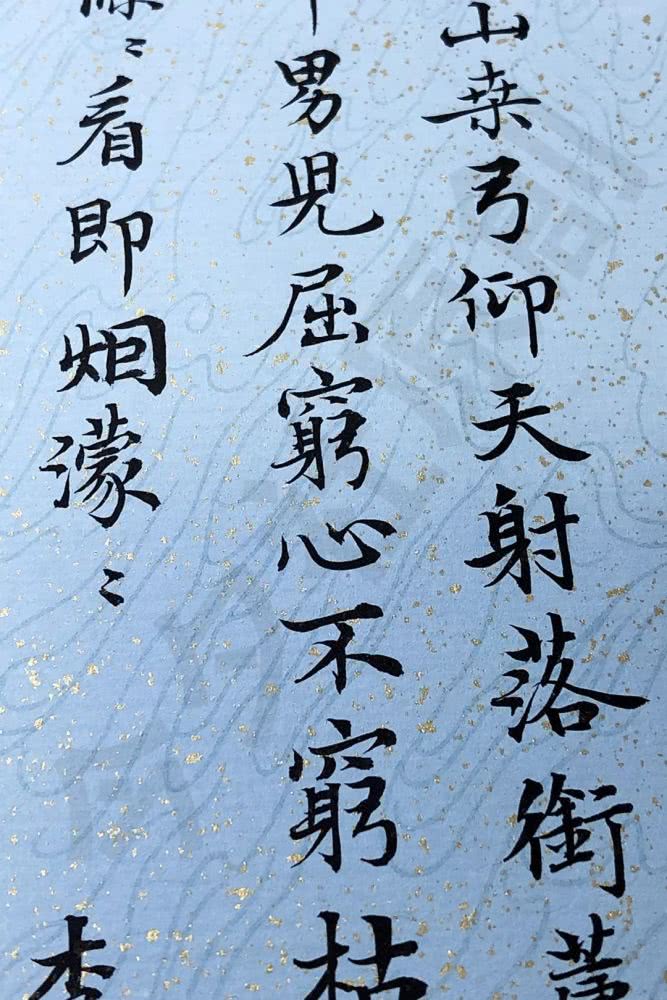 山桒弓仰天射落銜
男児屈窮心不窮枯
〻看即烟濛〻